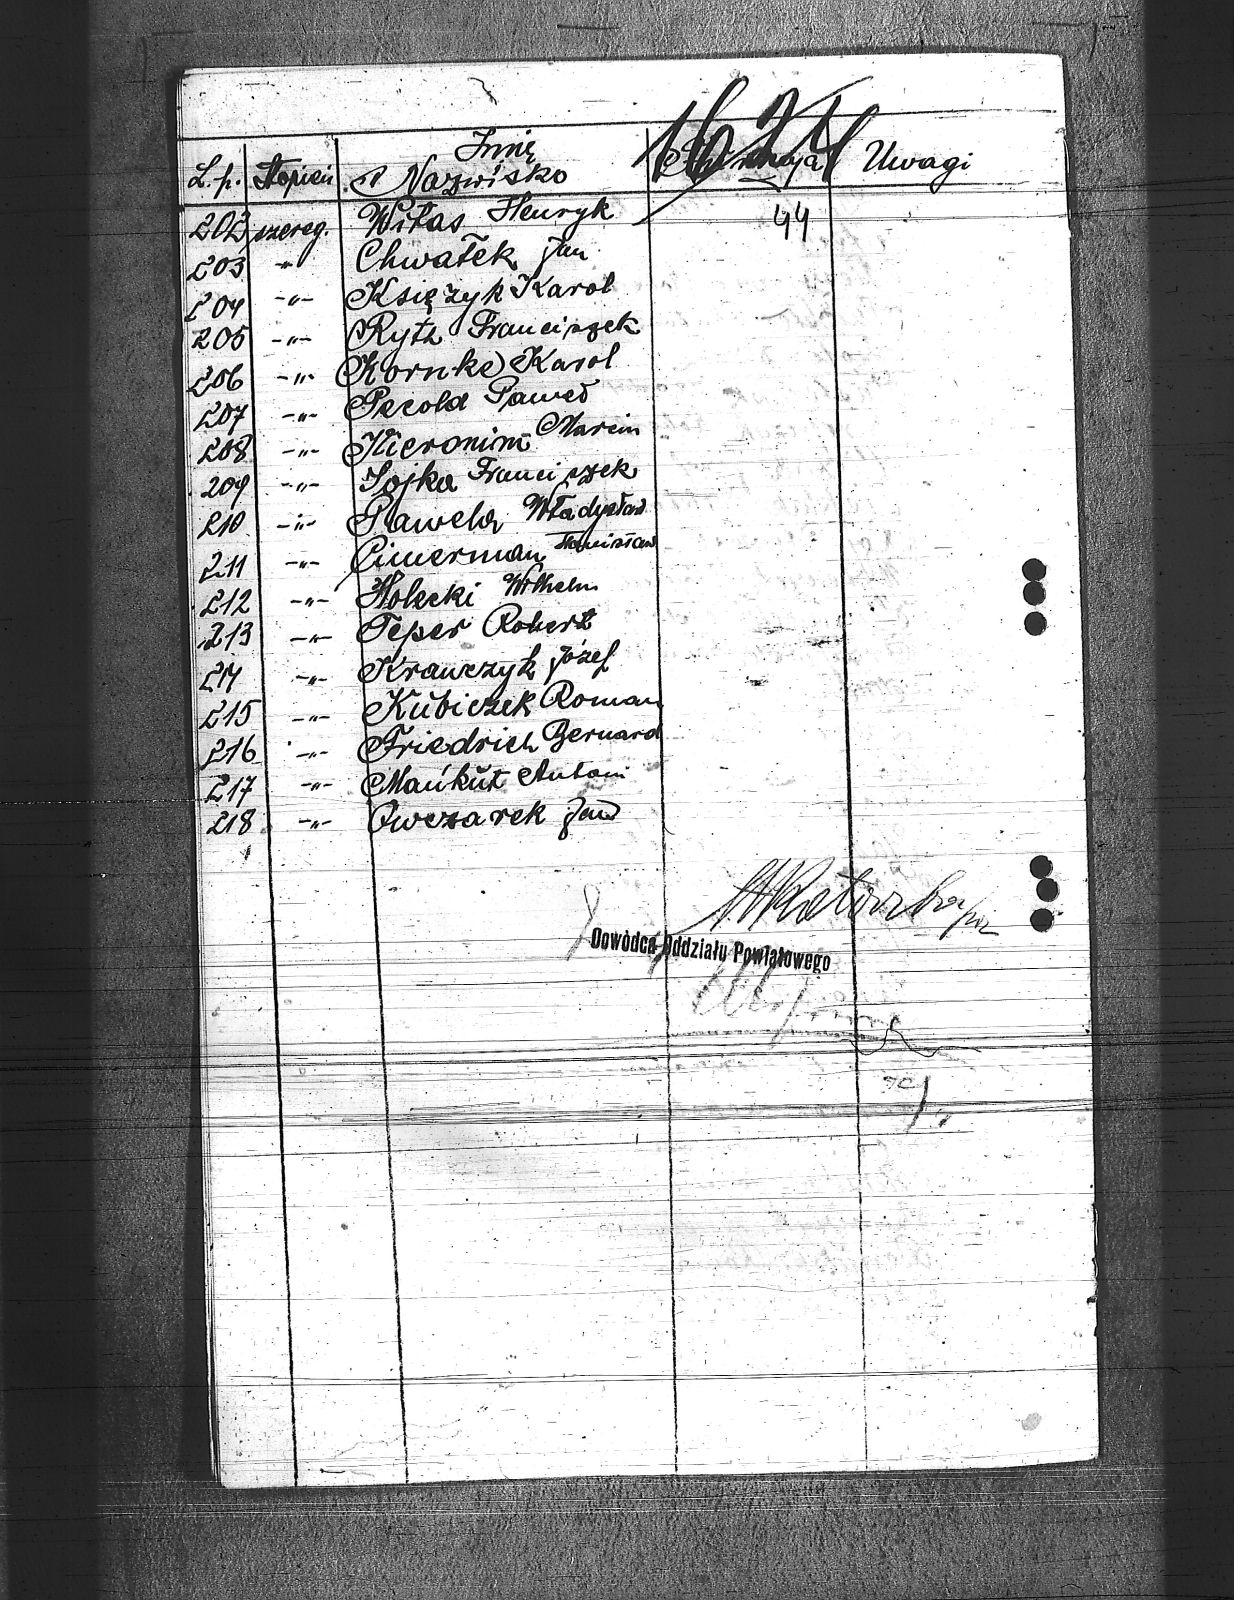 1621
Imię
L.p. Stopień i Nazwisko Uwagi
202 szereg. Witas Henryk 44
203 -"- Chwałek Jan
204 -"- Księżyk Karol
205 -"- Rytz Franciszek
206 -"- Kornke Karol
207 -"- Pecold Paweł
208 -"- Hieronim Marcin
209 -"- Sojka Franciszek
210 -"- Pawela Władysław
211 -"- Cimerman Stanisław
212 -"- Holecki Wilhelm
213 -"- Teper Robert
214 -"- Krawczyk Józef
215 -"- Kubiczek Roman
216 -"- Friedrich Bernard
217 -"- Mańkut Antoni
218 -"- Owczarek Jan
Dowódca Oddziału Powiatowego